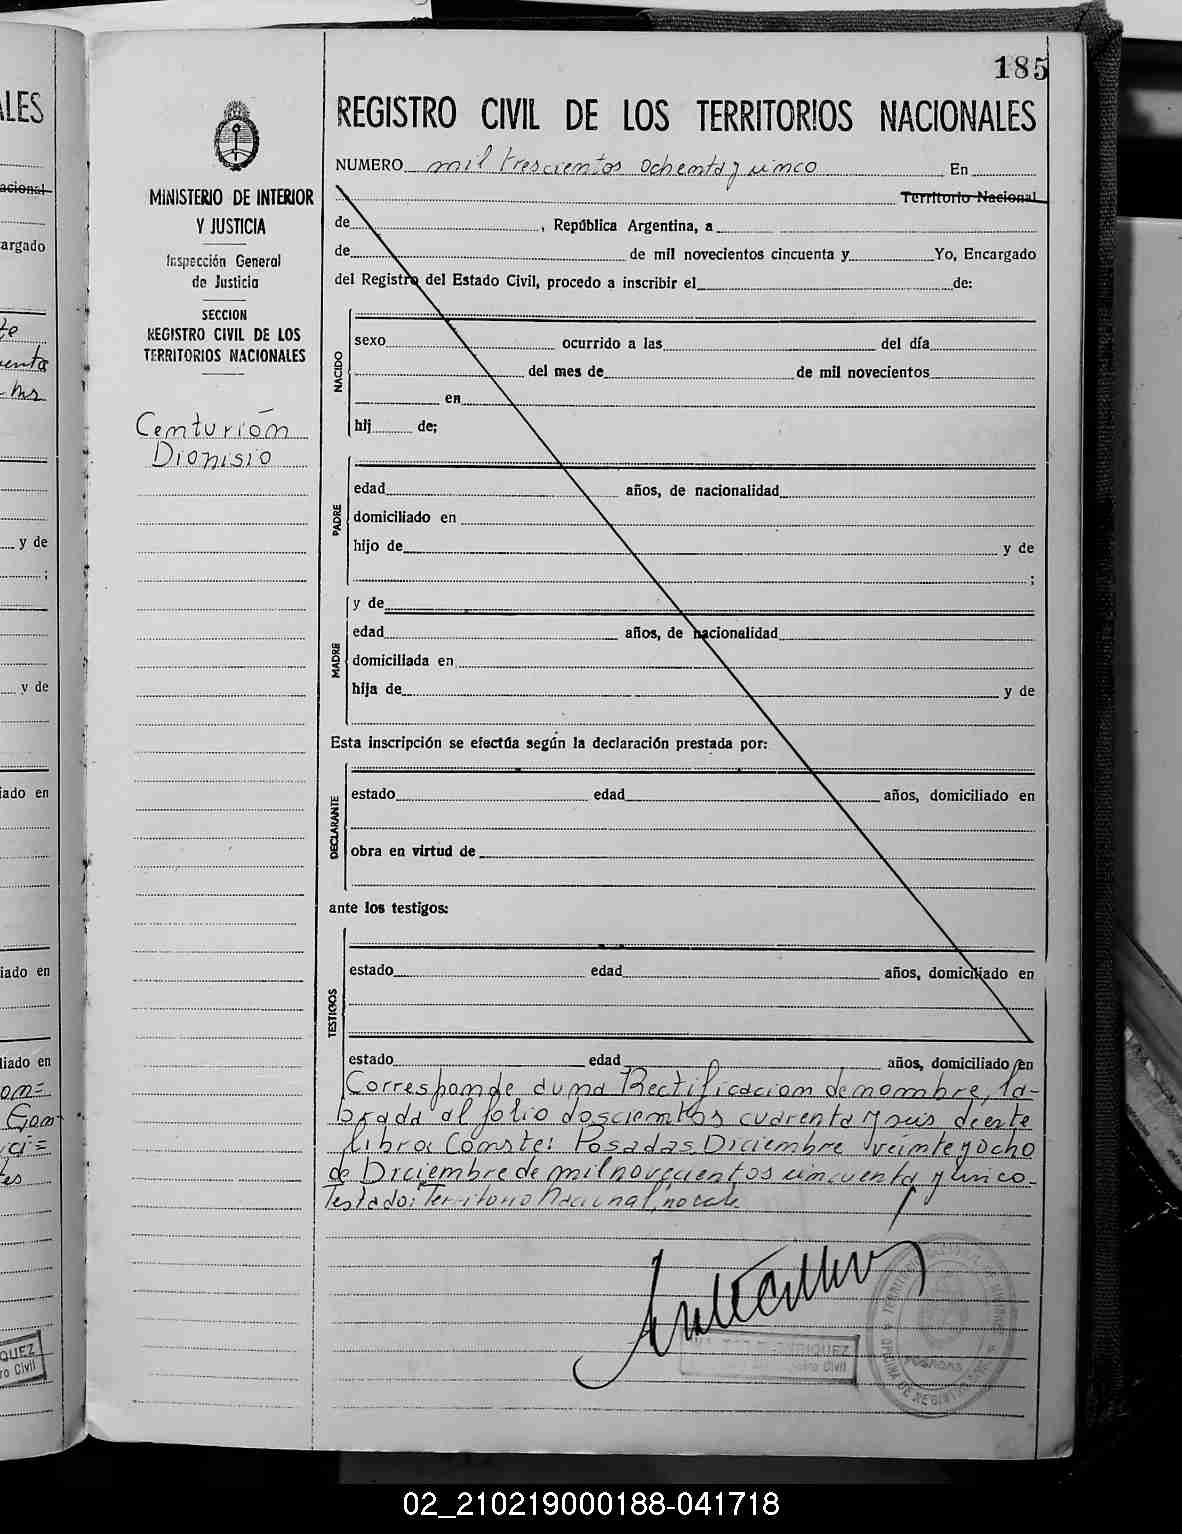 185
ALES
REGISTRO CIVIL DE LOS TERRITORIOS NACIONALES
NUMERO mil trescientos ochenta y cinco En
acional
MINISTERIO DE INTERIOR
Y JUSTICIA
Inspección General
de Justicia
SECCION
REGISTRO CIVIL DE LOS
TERRITORIOS NACIONALES
Centurión
Dionisio
Territorio Nacional
de , República Argentina, a
argado
de de mil novecientos cincuenta y Yo, Encargado
del Registro del Estado Civil, procedo a inscribir el de:
NACIDO
sexo ocurrido a las del día
del mes de de mil novecientos
en
hij de;
PADRE
edad años, de nacionalidad
domiciliado en
hijo de y de
;
y de
;
MADRE
y de
edad años, de nacionalidad
domiciliada en
hija de y de
y de
Esta inscripción se efectúa según la declaración prestada por:
DECLARANTE
estado edad años, domiciliado en
iado en
obra en virtud de
ante los testigos:
TESTIGOS
estado edad años, domiciliado en
iado en
estado edad años, domiciliado en
liado en
Corresponde a una Rectificacion de nombre, la-
brada al folio doscientos cuarenta y seis de este
libro. Conste: Posadas, Diciembre veinte y ocho
de Diciembre de mil novecientos cincuenta y cinco.
Testado: Territorio Nacional, no vale.
QUEZ
ro Civil
RIQUEZ
stro Civil
POSADAS
02_210219000188-041718